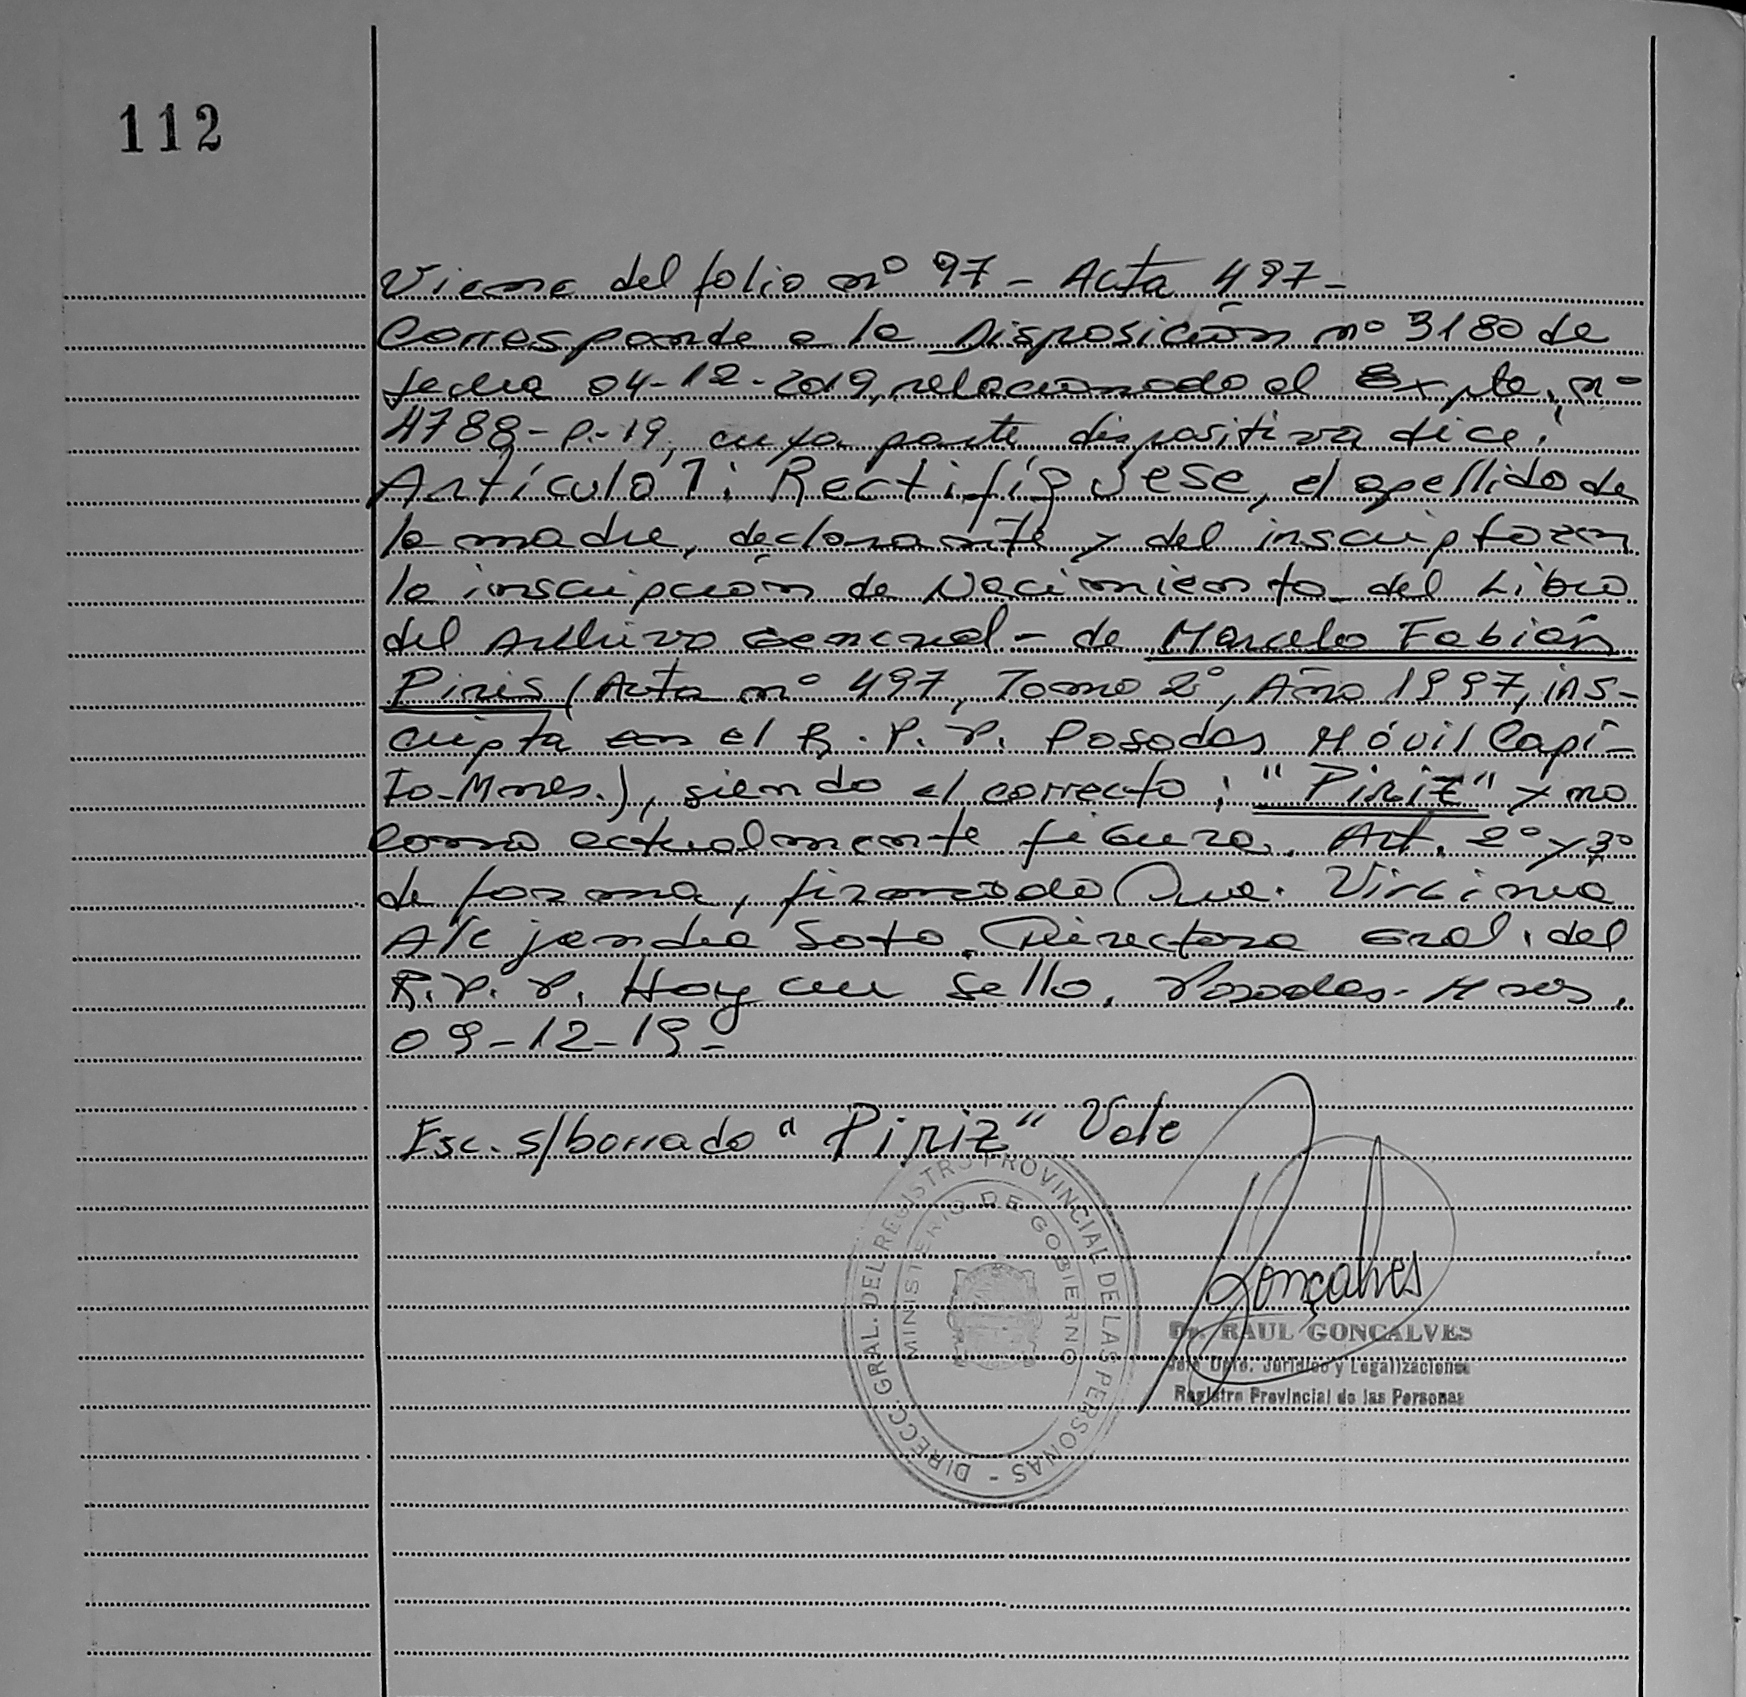 112
Viene del folio nº 97 - Acta 497 -
Corresponde a la Disposición nº 3180 de
fecha 04-12-2019, relacionado al Expte. nº
4788-P.-19, cuya parte dispositiva dice:
Artículo 1: Rectifíquese, el apellido de
la madre, declarante y del inscripto en
la inscripción de Nacimiento del Libro
del Archivo General - de Marcelo Fabián
Piris (Acta nº 497, Tomo 2º, Año 1997, ins-
cripta en el R.P.P. Posadas Móvil Capi-
to-Mnes.), siendo el correcto: "Piriz" y no
como actualmente figura. Art. 2º y 3º
de forma, firmado Virginia
Alejandra Soto. Directora Gral. del
R.P.P. Hay un sello. Posadas-Mnes.
09-12-19-
Esc. s/borrado "Piriz" Vale
DIRECC. GRAL. DEL REGISTRO PROVINCIAL DE LAS PERSONAS -
MINISTERIO DE GOBIERNO
Gonçalves
Dr. RAUL GONÇALVES
Jefe Dpto. Jurídico y Legalizaciones
Registro Provincial de las Personas